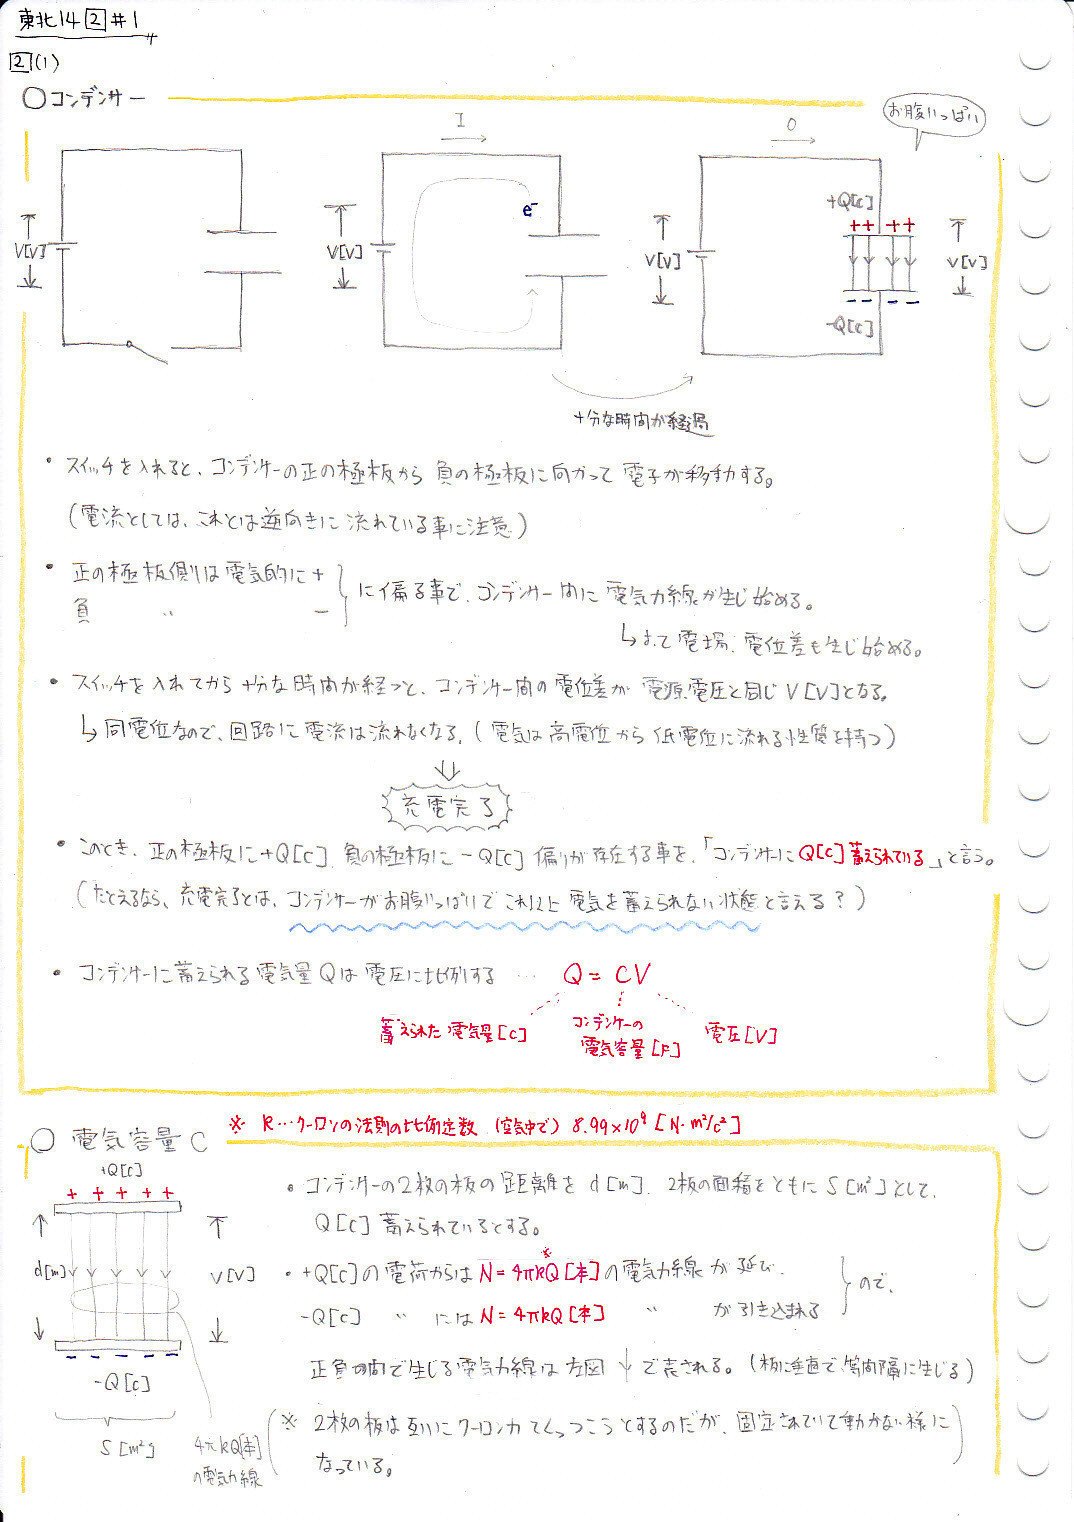 東北14 2 #1
2 (1)
○コンデンサー
I
0
お腹いっぱい
e⁻
+Q[C]
++ ++
V[V]
V[V]
V[V]
V[V]
-Q[C]
十分な時間が経過
・スイッチを入れると、コンデンサーの正の極板から負の極板に向かって電子が移動する。
(電流としては、これとは逆向きに流れている事に注意)
・正の極板側は電気的に+
負 〃 −
に偏る事で、コンデンサー間に電気力線が生じ始める。
↳よって電場、電位差も生じ始める。
・スイッチを入れてから十分な時間が経つと、コンデンサー間の電位差が電源電圧と同じV[V]となる。
↳同電位なので、回路に電流は流れなくなる。(電気は高電位から低電位に流れる性質を持つ)
⇓
充電完了
・このとき、正の極板に+Q[C]、負の極板に-Q[C]偏りが存在する事を、「コンデンサーにQ[C]蓄えられている」と言う。
(たとえるなら、充電完了とは、コンデンサーがお腹いっぱいでこれ以上電気を蓄えられない状態と言える?)
・コンデンサーに蓄えられる電気量Qは電圧に比例する … Q = CV
蓄えられた電気量[C]
コンデンサーの
電気容量[F]
電圧[V]
※ k…クーロンの法則の比例定数 (空気中で) 8.99×10⁹ [N・m²/C²]
○ 電気容量C
+Q[C]
+ + + + +
d[m]
V[V]
-Q[C]
S[m²]
4πkQ[本]
の電気力線
・コンデンサーの2枚の板の距離をd[m]、2板の面積をともにS[m²]として、
Q[C]蓄えられているとする。
・+Q[C]の電荷からはN=4πkQ[本]の電気力線が延び、
※
-Q[C] 〃 にはN=4πkQ[本] 〃 が引き込まれる
ので、
正負の間で生じる電気力線は左図↓で表される。(板に垂直で等間隔に生じる)
(※ 2枚の板は互いにクーロン力でくっつこうとするのだが、固定されていて動かない様に
なっている。)